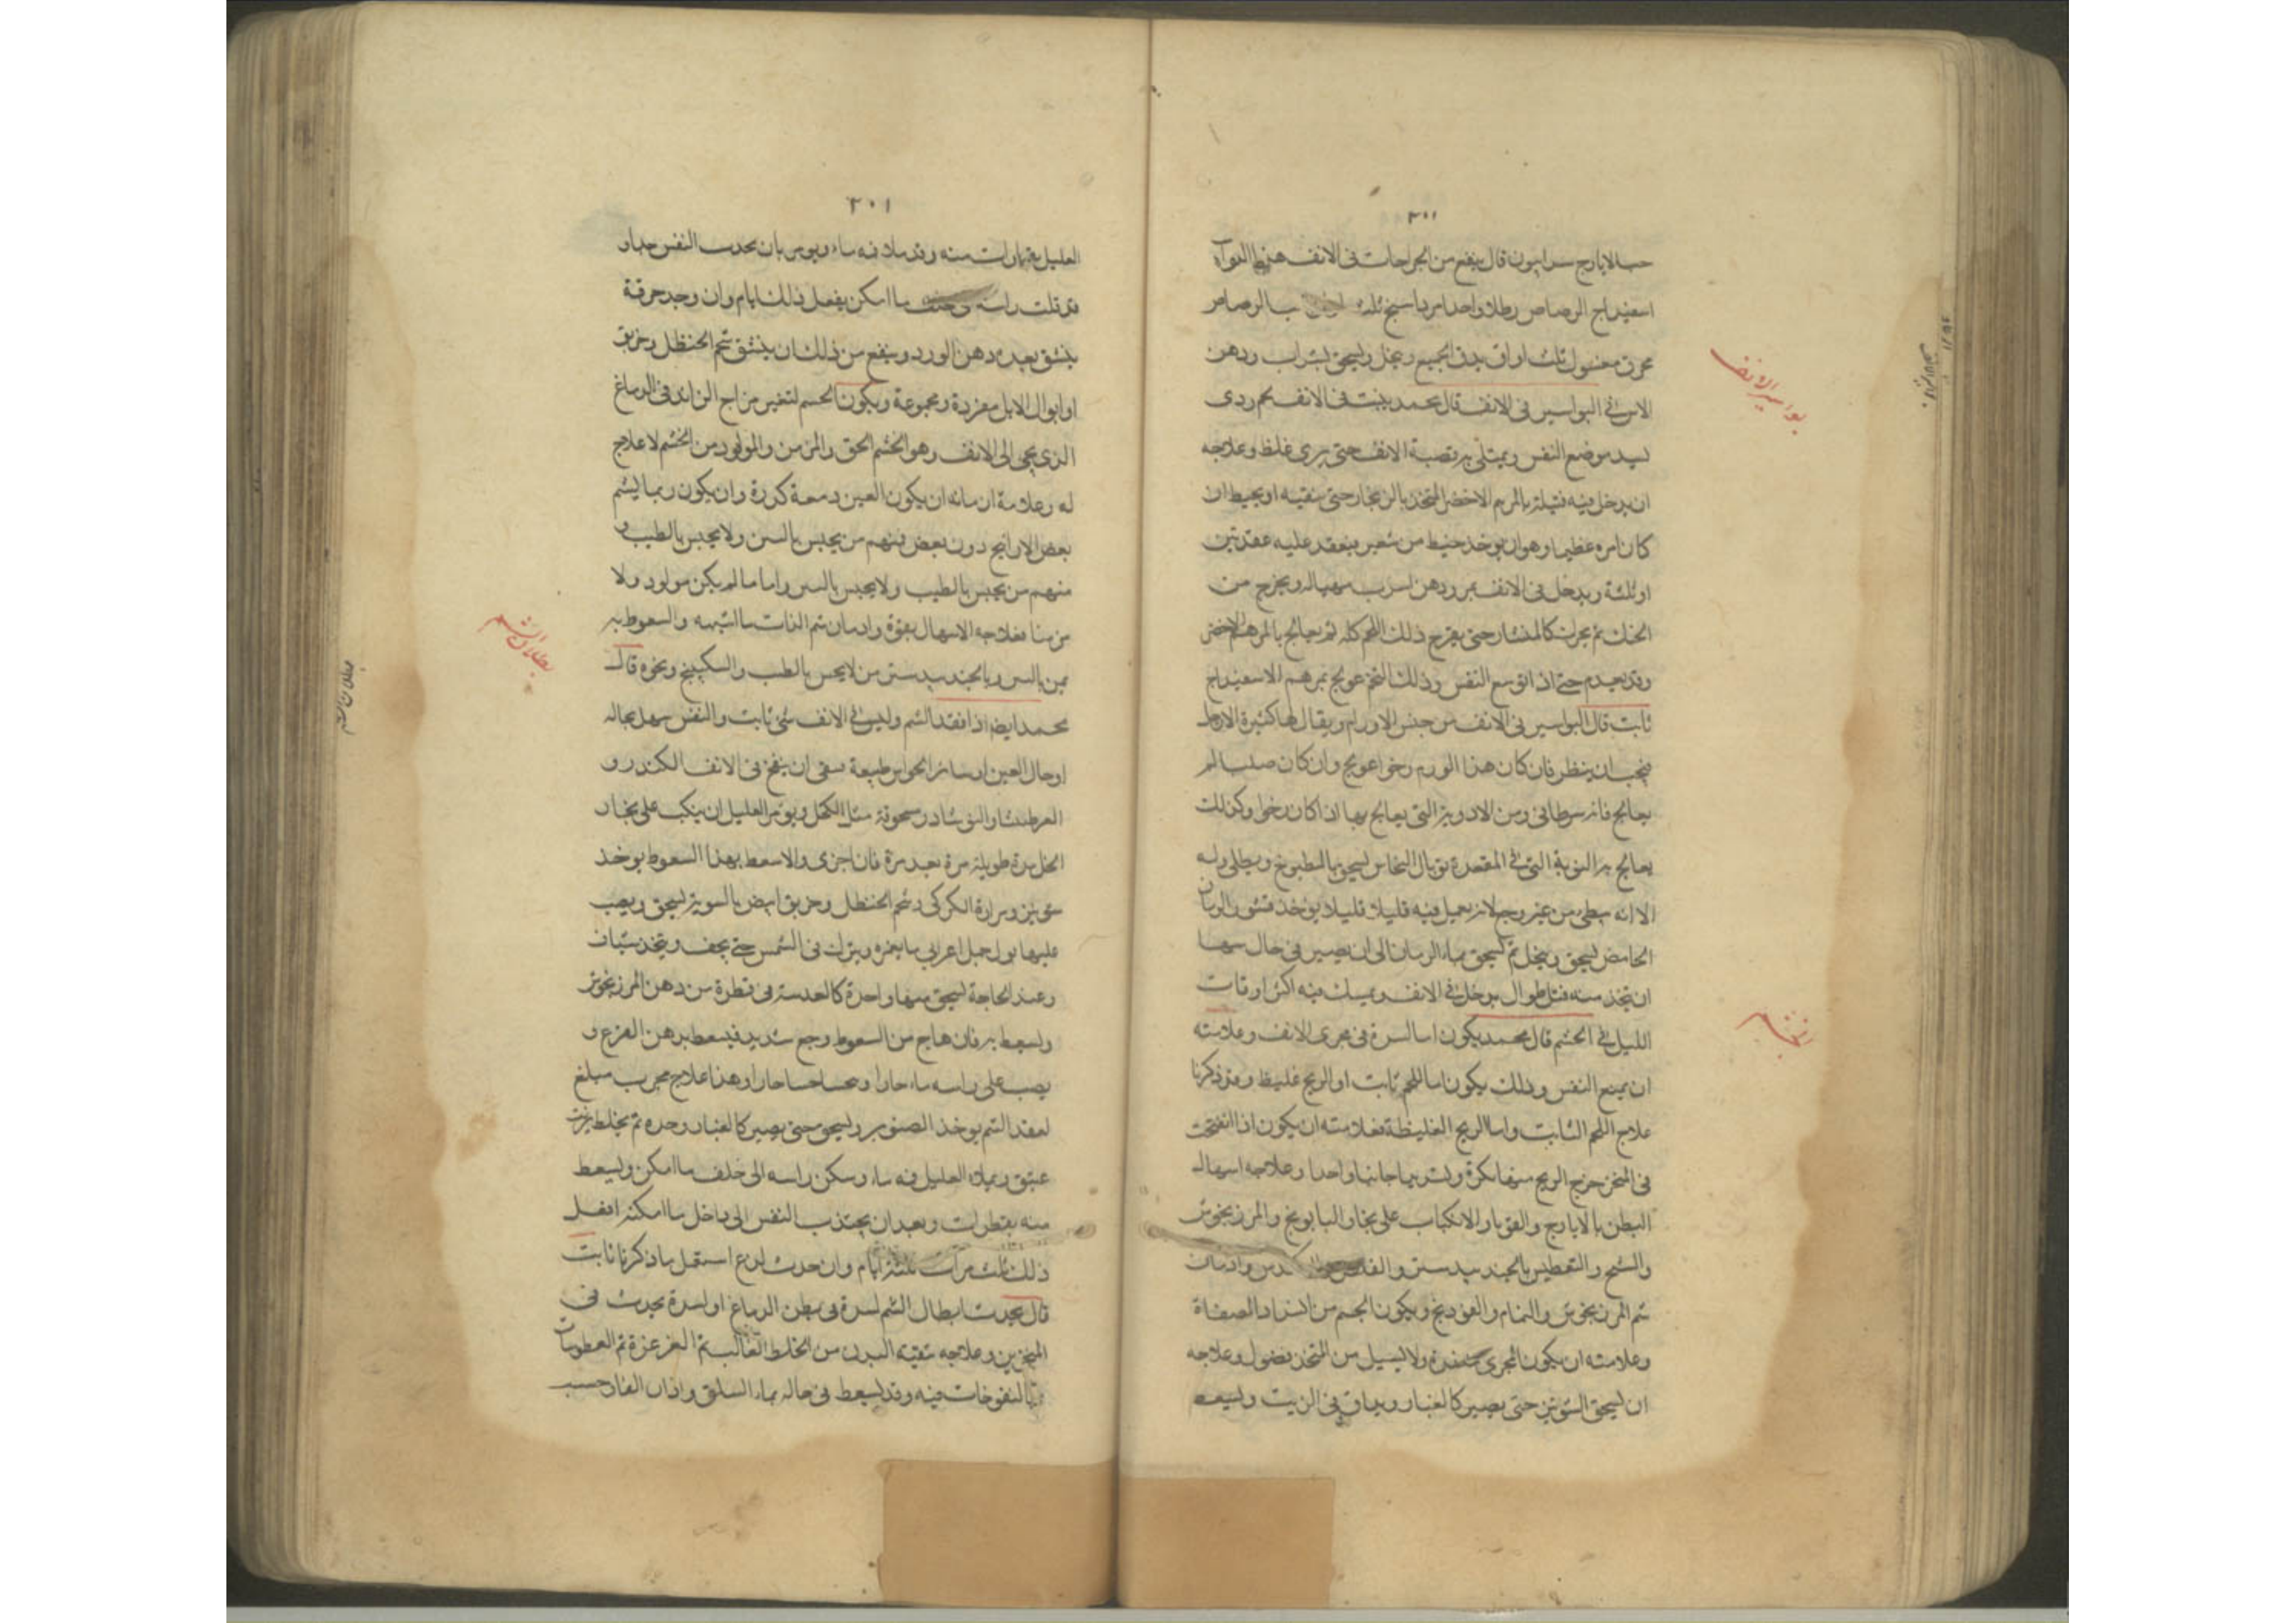 ٣٠٠
حب الايارج سرابيون قال ينفع من الجراحات فى الانف هذا الدوآء
اسفيداج الرصاص رطلا واحدا مرداسنج ثلثه بالرصاص
محرق مغسول ثلث اواق يدق الجميع وينخل ويسحق بشراب ودهن
الاس فى البواسير فى الانف قال محمد ينبت فى الانف لحم ردى
يسد موضع النفس ويمتلى به قصبة الانف حتى يرى غلظ وعلاجه
ان يدخل فيه فتيلة بالمرهم الاخضر المتخذ بالزنجار حتى ينقيه او يخيط ان
كان امره عظيما وهو ان يوخذ خيط من شعير ينعقد عليه عقدتين
او ثلثة ويدخل فى الانف ويخرج من
الحنك ثم يحرك كالمنشار حتى يقرح ذلك اللحم كله ثم يعالج بالمرهم الاخضر
حتى اذا اتوسع النفس وذلك اللحم عولج بمرهم الاسفيداج
ثابت قال البواسير فى الانف من جنس الاورام ويقال لها كثيرة الارجل
فيجب ان ينظر فان كان هذا الورم رخوا عولج وان كان صلبا لم
يعالج فانه سرطانى ومن الادوية التى يعالج بها اذا كان رخوا وكذلك
يعالج به التى فى المقعدة توبال النحاس يسحق بالمطبوخ ويطلى وله
الا انه بطى من غير وجع لانه يعمل فيه قليلا قليلا يوخذ قشور الرمان
الحامض يسحق وينخل ثم يسحق بماء الرمان الى ان يصير فى حال
ان يتخذ منه فتل طوال يدخل فى الانف ويمسك فيه اكثر اوقات
الليل فى الخشم قال محمد يكون اما لسدة فى مجرى الانف وعلامته
ان يمنع النفس وذلك يكون اما للحم نابت او لريح غليظ وقد ذكرنا
علاج اللحم النابت واما الريح الغليظة فعلامته ان يكون اذا انفتحت
فى المنخر خرج الريح منها بكرة جانبا واحدا وعلاجه اسهال
البطن بالايارج والقوقايا والانكباب على بخار البابونج والمرزنجوش
والشيح والتعطيس بالجندبيدستر والفلفل وادمان
شم المرزنجوش والنمام والفودنج ويكون الخشم من انسداد المصفاة
وعلامته ان يكون المجرى ولا يسيل من المنخر فضول وعلاجه
ان يسحق الشونيز حتى يصير كالغبار ويداف فى الزيت ويسعط
بواسير الانف
الخشم
٣٠١
العليل بقطرات منه وقد ملا فه ماء ويومر بان يجذب النفس جدا و
قد قلت راسه ما امكن يفعل ذلك ايام وان وجد حرقة
ينشق بعده دهن الورد وينفع من ذلك ان ينشق شحم الحنظل وخربق
او ابوال الابل مفردة ومجموعة ويكون الخشم لتغير مزاج الزائد فى الدماغ
الذى يجى الى الانف وهو الخشم الحق والمزمن والمولود من الخشم لاعلاج
له وعلامة ان يكون العين دمعة كدرة وان يكون ربما يشم
بعض الارائيح دون بعض فمنهم من يحس بالنتن ولا يحس بالطيب و
منهم من يحس بالطيب ولا يحس بالنتن واما ما لم يكن مولود ولا
مزمنا فعلاجه الاسهال بقوة وادمان شم الذات ما اشبهه والسعوط به
بالجندبيدستر من لا يحس بالطيب والسكبينج ونحوه قال
محمد ايضا اذا فقد الشم وليس فى الانف شى نابت والنفس سهل بحاله
او حال العين او سائر الحواس طبيعة ينبغى ان ينفخ فى الانف الكندر و
العرطنيثا والنوشادر مسحوقة مثل الكحل ويومر العليل ان ينكب على بخار
الخل مدة طويلة مرة بعد مرة فان اجزى والا سعط بهذا السعوط يوخذ
شونيز ومرارة الكركى وشحم الحنظل وخربق ابيض بالسوية يسحق ويصب
عليها بول جمل اعرابى ما يغمره ويترك فى الشمس حتى يجف ويتخذ شياف
وعند الحاجة يسحق منها واحدة كالعدسة فى قطرة من دهن المرزنجوش
ويسعط به فان هاج من السعوط وجع شديد فيسعط بدهن القرع و
يصب على راسه ماء حارا او حسا حارا وهذا علاج مجرب مبلغ
لفقد الشم يوخذ ويسحق حتى يصير كالغبار وحده ثم يخلط بزيت
عتيق ويملا العليل فه ماء ويسكن راسه الى خلف ما امكن ويسعط
منه بقطرات وبعد ان يجتذب النفس الى داخل ما امكنه افعل
ذلك ثلث مرات ثلثة ايام وان حدث لذع استعمل ما ذكرنا ثابت
قال يحدث ابطال الشم لسدة فى بطن الدماغ او لسدة يحدث فى
المنخرين وعلاجه تنقية البدن من الخلط الغالب ثم الغرغرة ثم العطوسات
ثم النفوخات فيه وقد يسعط فى حاله بماء السلق واذان الفار حسب
بطلان الشم
بطلان الشم